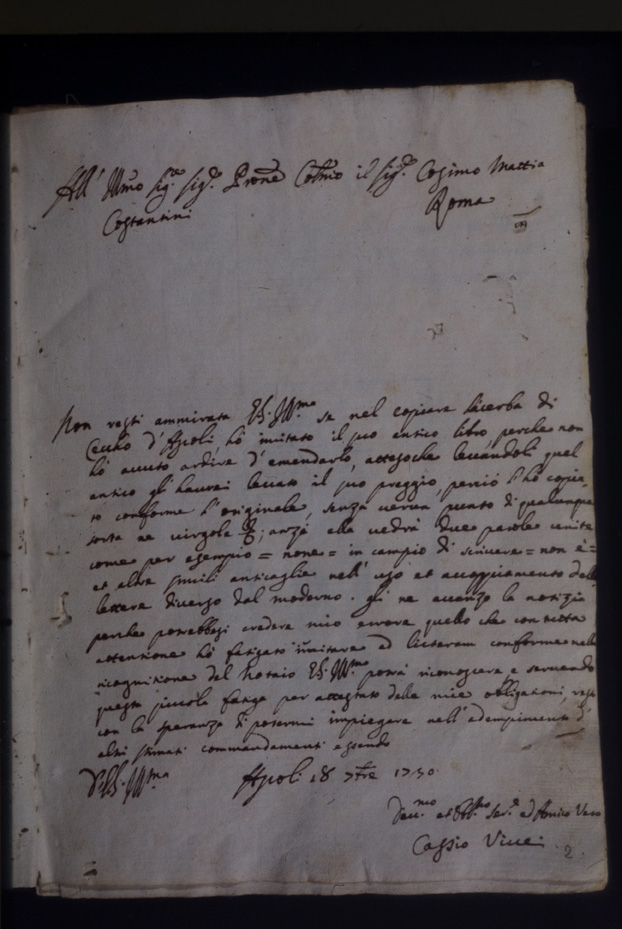 All' Illmo Sig.re Sig.re Prone Colmo il Sig.re Cosimo Mattia
Costantini
Roma
Non resti ammirata VS. Ill.ma se nel copiare l'acerba di
Ceccho d'Ascoli hò imitato il suo antico libro perche non
hò avuto ardire d'emendarlo, attesoche levandoli quel
antico gl'haurei levato il suo preggio, perciò l'hò copia-
to conforme l'originale, senza verun punto di qualunque
sorta ne virgole &; anzi ella vedrà due parole unite
come per esempio = none = in campio di scrivere = non è =
et altre simili anticaglie nell'uso et accoppiamento delle
lettere diverso dal moderno. gli ne avanzo la notizia
perche potrebbesi credere mio errore quello che con tutta
attentione hò fatigato imitare ad litteram conforme nella
ricognitione del Notaio VS. Ill.ma potrà riconoscere e servendo
questa piccola fatiga per attestato delle mie obligationi, resto
con la speranza di potermi impiegare nell'adempimento d'
altri stimati commandamenti essendo
D VS. Ill.ma
Ascoli 18 7bre 1730
Dev.mo et Obb.mo Ser.e ed Amico Vero
Cassio Vinci
2